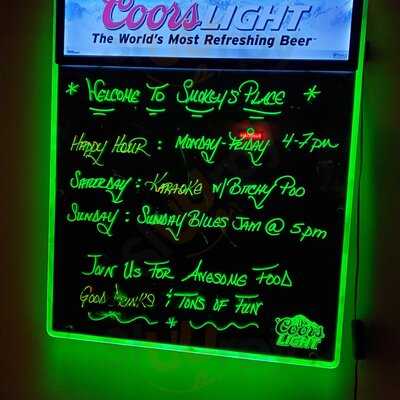 Coors LIGHT
The World's Most Refreshing Beer
* WELCOME TO SMOKEY'S PLACE *
HAPPY HOUR : MONDAY-FRIDAY 4-7pm
SATERDAY : KARAOKE W/BITCHY POO
SUNDAY : SUNDAY BLUES JAM @ 5pm
JOIN US FOR AWESOME FOOD
GOOD DRINKS & TONS OF FUN
*
Coors
LIGHT